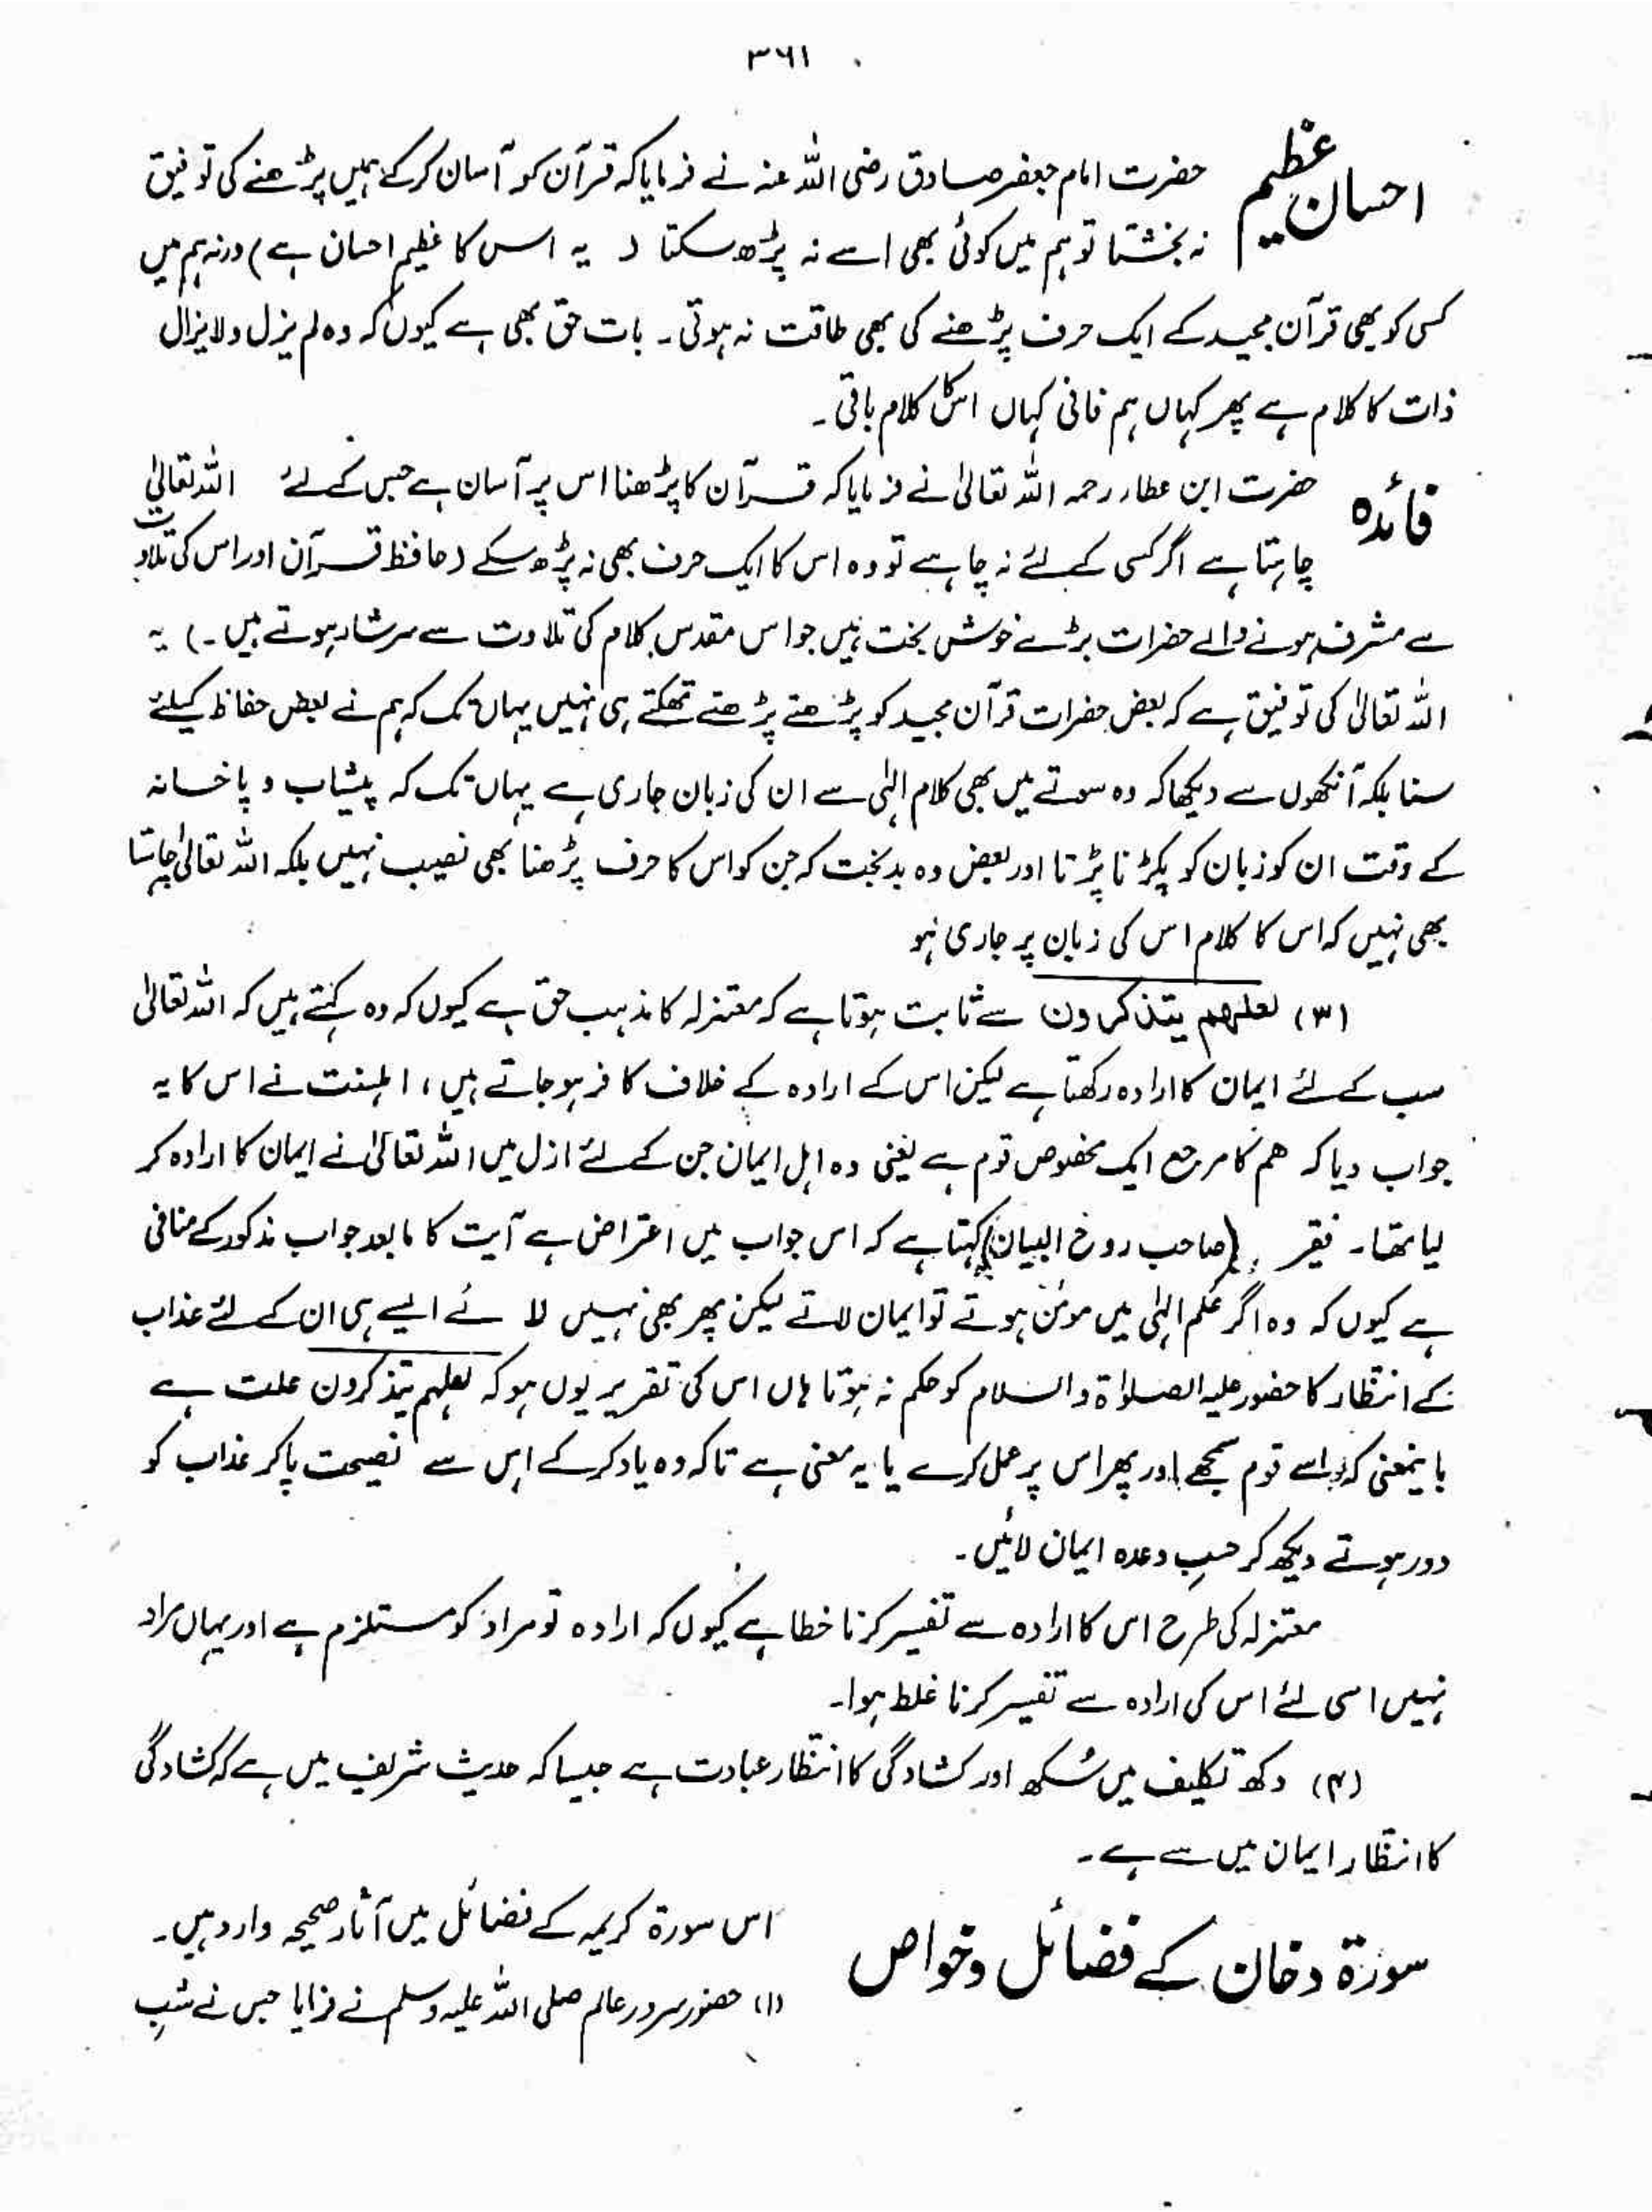 ۳۶۱
احسان عظیم حضرت امام جعفر صادق رضی اللہ عنہ نے فرمایا کہ قرآن کو آسان کرکے ہمیں پڑھنے کی توفیق
نہ بخشتا تو ہم میں کوئی بھی اسے نہ پڑھ سکتا ( یہ اس کا عظیم احسان ہے) ورنہ ہم میں
کسی کو بھی قرآن مجید کے ایک حرف پڑھنے کی بھی طاقت نہ ہوتی۔ بات حق بھی ہے کیوں کہ وہ لم یزل ولا یزال
ذات کا کلام ہے پھر کہاں ہم فانی کہاں اس کا کلام باقی۔
فائدہ حضرت ابن عطار رحمہ اللہ تعالیٰ نے فرمایا کہ قرآن کا پڑھنا اس پر آسان ہے جس کے لئے اللہ تعالیٰ
چاہتا ہے اگر کسی کے لئے نہ چاہے تو وہ اس کا ایک حرف بھی نہ پڑھ سکے (حافظ قرآن اور اس کی تلاوت
سے مشرف ہونے والے حضرات بڑے خوش بخت ہیں جو اس مقدس کلام کی تلاوت سے سرشار ہوتے ہیں۔) یہ
اللہ تعالیٰ کی توفیق ہے کہ بعض حضرات قرآن مجید کو پڑھتے پڑھتے تھکتے ہی نہیں یہاں تک کہ ہم نے بعض حفاظ کیلئے
سنا بلکہ آنکھوں سے دیکھا کہ وہ سوتے میں بھی کلام الٰہی سے ان کی زبان جاری ہے یہاں تک کہ پیشاب و پاخانہ
کے وقت ان کو زبان کو پکڑنا پڑتا اور بعض وہ بدبخت کہ جن کو اس کا حرف پڑھنا بھی نصیب نہیں بلکہ اللہ تعالیٰ چاہتا
بھی نہیں کہ اس کا کلام اس کی زبان پر جاری ہو
(۳) لعلہم یتذکرون سے ثابت ہوتا ہے کہ معتزلہ کا مذہب حق ہے کیوں کہ وہ کہتے ہیں کہ اللہ تعالیٰ
سب کے لئے ایمان کا ارادہ رکھتا ہے لیکن اس کے ارادہ کے خلاف کافر ہو جاتے ہیں، اہلسنت نے اس کا یہ
جواب دیا کہ ھم کا مرجع ایک مخصوص قوم ہے یعنی وہ اہل ایمان جن کے لئے ازل میں اللہ تعالیٰ نے ایمان کا ارادہ کر
لیا تھا۔ فقیر (صاحب روح البیان) کہتا ہے کہ اس جواب میں اعتراض ہے آیت کا مابعد جواب مذکور کے منافی
ہے کیوں کہ وہ اگر علم الٰہی میں مومن ہوتے تو ایمان لاتے لیکن پھر بھی نہیں لائے ایسے ہی ان کے لئے عذاب
کے انتظار کا حضور علیہ الصلوٰۃ والسلام کو حکم نہ ہوتا ہاں اس کی تقریر یوں ہو کہ لعلہم یتذکرون علت ہے
بایمعنی کہ اسے قوم سمجھے اور پھر اس پر عمل کرے یا یہ معنی ہے تاکہ وہ یاد کرکے اس سے نصیحت پاکر عذاب کو
دور ہوتے دیکھ کر حسبِ وعدہ ایمان لائیں۔
معتزلہ کی طرح اس کا ارادہ سے تفسیر کرنا خطا ہے کیوں کہ ارادہ تو مراد کو مستلزم ہے اور یہاں مراد
نہیں اسی لئے اس کی ارادہ سے تفسیر کرنا غلط ہوا۔
(۴) دکھ تکلیف میں سُکھ اور کشادگی کا انتظار عبادت ہے جیسا کہ حدیث شریف میں ہے کہ کشادگی
کا انتظار ایمان میں سے ہے۔
سورۃ دخان کے فضائل وخواص اس سورۃ کریمہ کے فضائل میں آثار صحیحہ وارد ہیں۔
(۱) حضور سرور عالم صلی اللہ علیہ وسلم نے فرمایا جس نے شبِ